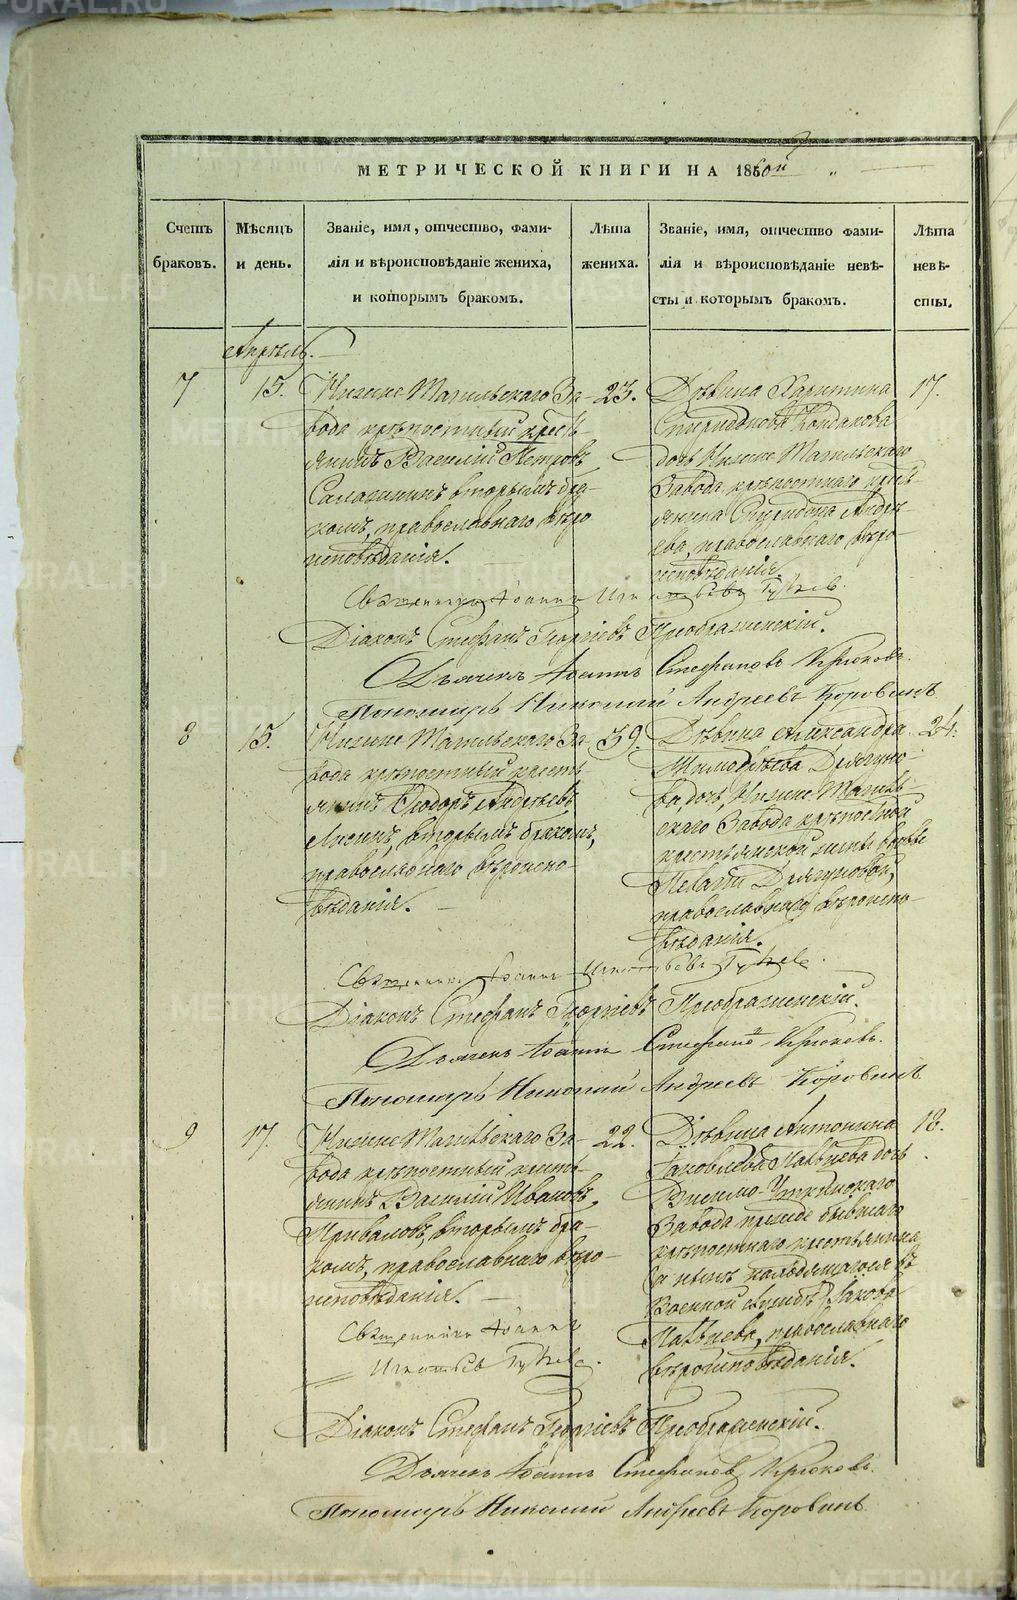 МЕТРИЧЕСКОЙ КНИГИ НА 1860й
Счетъ браковъ.
Мѣсяцъ и день.
Званіе, имя, отчество, фами-
лія и вѣроисповѣданіе жениха,
и которымъ бракомъ.
Лѣта
жениха.
Званіе, имя, отчество фами-
лія и вѣроисповѣданіе невѣ-
сты и которымъ бракомъ.
Лѣта
невѣ-
сты.
Апрѣль.
7
15.
Нижне Тагильскаго За-
вода крѣпостный кресть-
янинъ Василій Петровъ
вторымъ бра-
комъ, православнаго вѣро
исповѣданія.
23.
Дѣвица Харитина
Спиридонова Кондакова
дочь Нижне Тагильскаго
Завода крѣпостнаго кресть-
янина Спиридона Андре-
ева, православнаго вѣро-
исповѣданія.
17.
Священникъ Іоаннъ Игнатьевъ
Діаконъ Стефанъ Георгіевъ Преображенскій.
Дьячекъ Іоаннъ Стефановъ Крюковъ.
Пономарь Николай Андреевъ Боровинъ
8
15.
Нижне Тагильскаго За-
вода крѣпостный кресть-
янинъ Ѳеодоръ Андреевъ
Лисинъ, вторымъ бракомъ,
православнаго вѣроиспо-
вѣданія.
39.
Дѣвица Александра
Тимоѳѣева
дочь Нижне Тагиль-
скаго Завода крѣпостной
крестьянской
православнаго вѣроиспо-
вѣданія.
24.
Священникъ Іоаннъ Игнатьевъ
Діаконъ Стефанъ Георгіевъ Преображенскій.
Дьячекъ Іоаннъ Стефановъ Крюковъ.
Пономарь Николай Андреевъ Боровинъ
9
17.
Нижне Тагильскаго За-
вода крѣпостный кресть-
янинъ Василій Ивановъ
Приваловъ, вторымъ бра-
комъ, православнаго вѣро-
исповѣданія.
22.
Дѣвица Антонина
Іаковлева дочь
Висимо-Уткинскаго
Завода прежде бывшаго
крѣпостнаго крестьянина
а нынѣ находящагося въ
Военной службѣ Іакова
православнаго
вѣроисповѣданія.
18.
Священникъ Іоаннъ
Игнатьевъ
Діаконъ Стефанъ Георгіевъ Преображенскій.
Дьячекъ Іоаннъ Стефановъ Крюковъ.
Пономарь Николай Андреевъ Боровинъ
METRIKI.GASO-URAL.RU